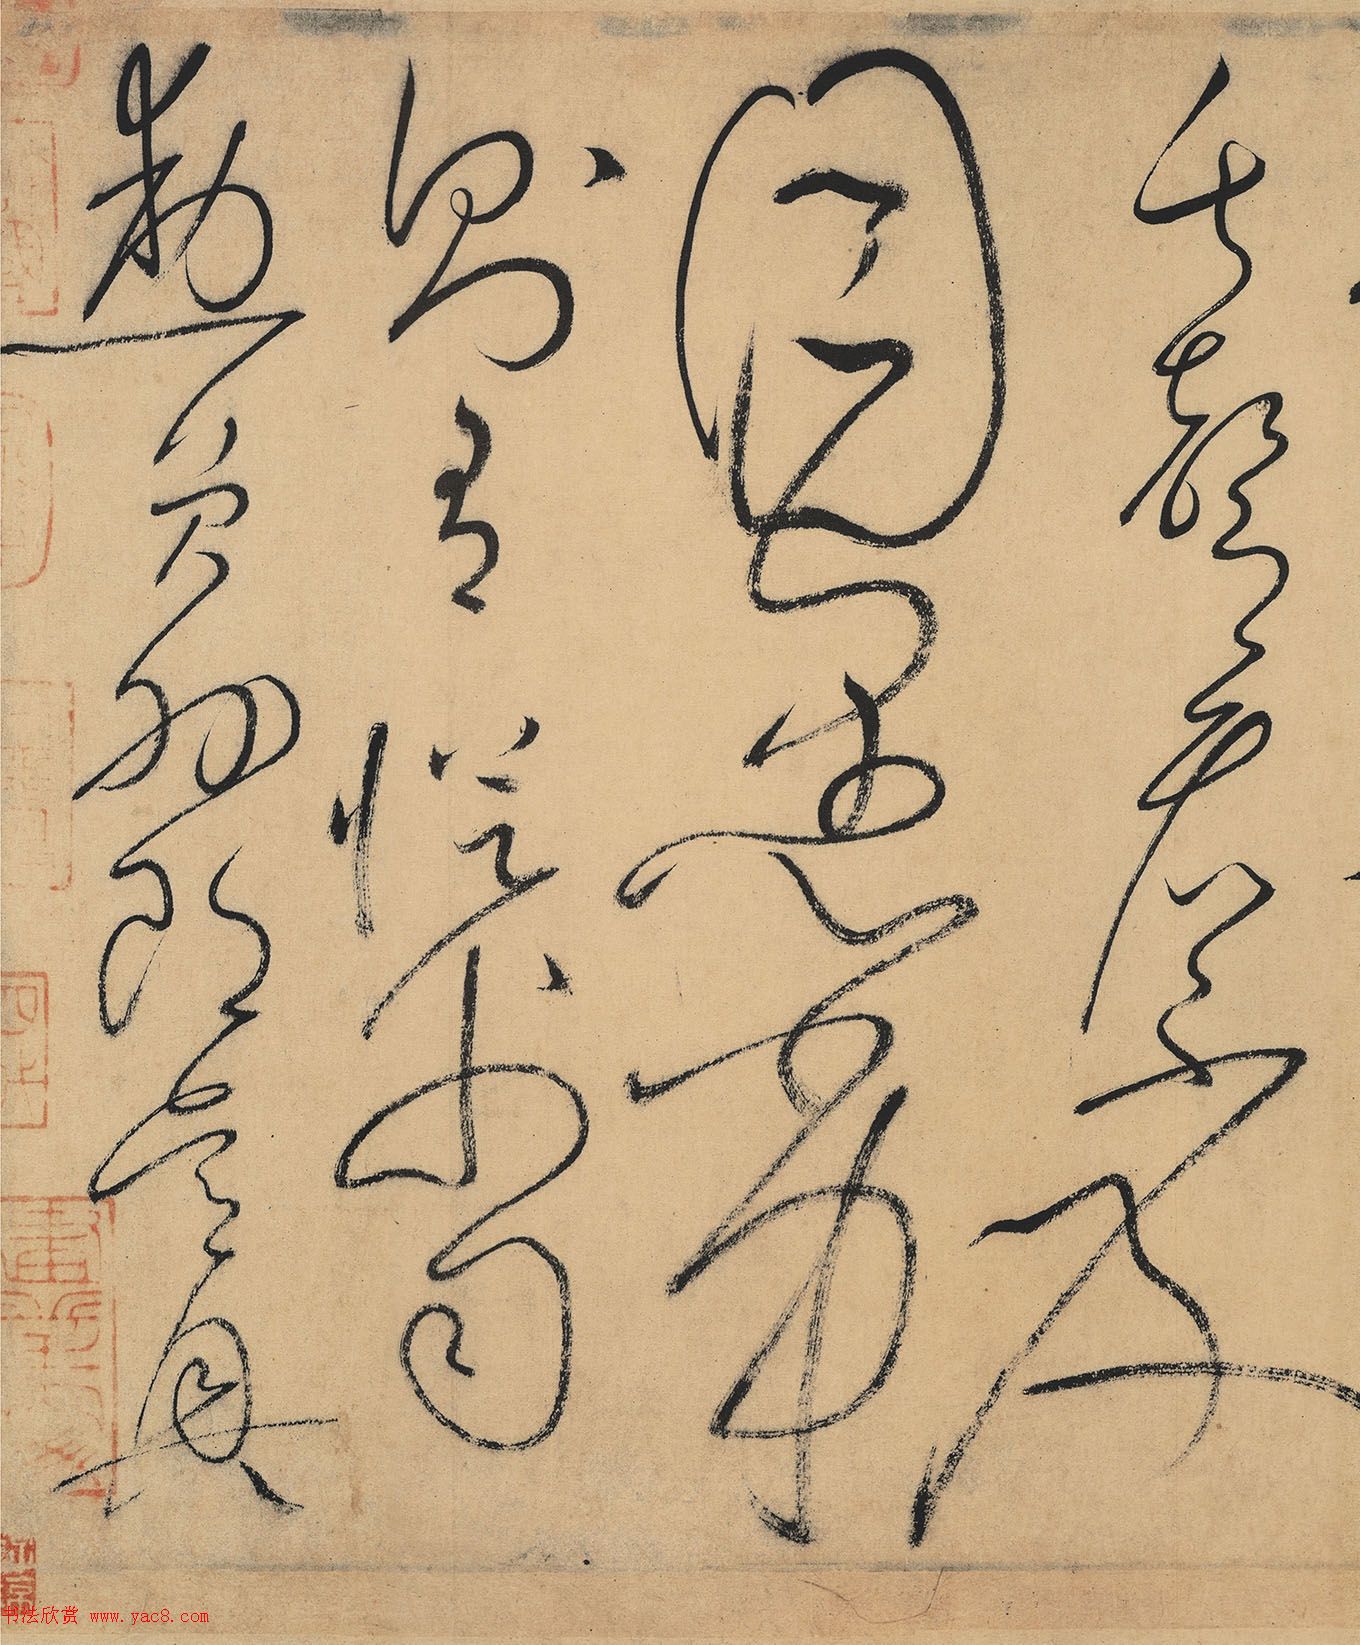 失聲看不及
目愚劣
則有從父司
勳員外郎吳興
书法欣赏 www.yac8.com